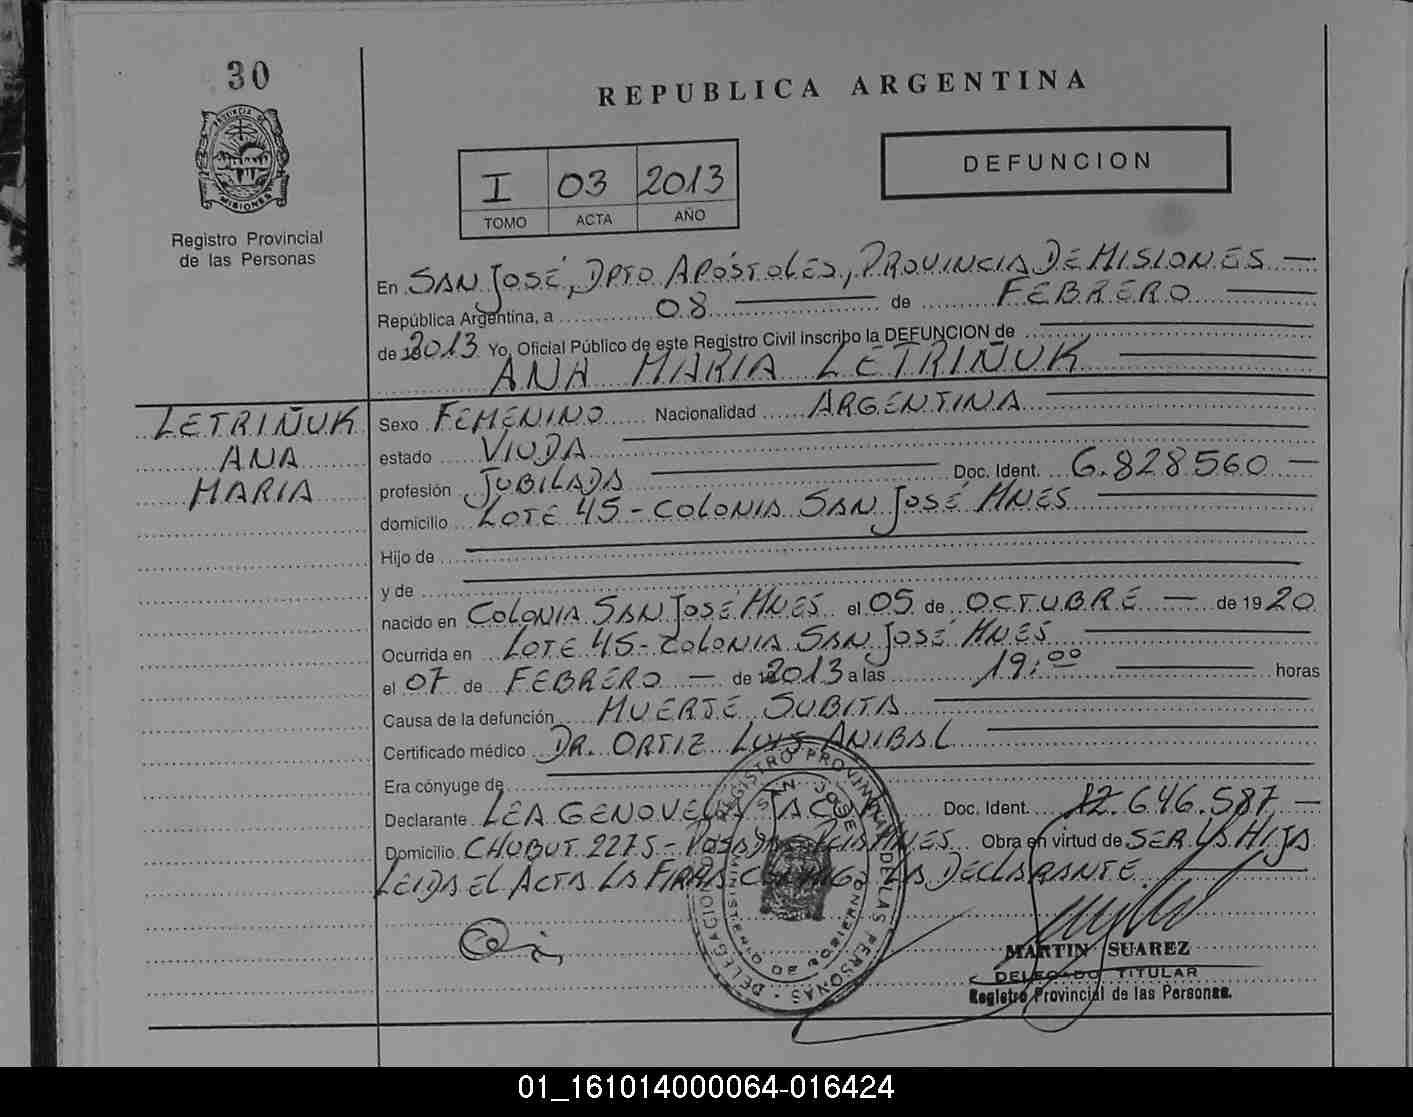 30
PROVINCIA DE
MISIONES
Registro Provincial
de las Personas
REPUBLICA ARGENTINA
I 03 2013
TOMO ACTA AÑO
DEFUNCION
En SAN JOSÉ, DPTO APÓSTOLES, PROVINCIA DE MISIONES —
República Argentina, a 08 — de FEBRERO —
de 2013 Yo, Oficial Público de este Registro Civil inscribo la DEFUNCION de —
ANA MARIA LETRIÑUK —
LETRIÑUK
ANA
MARIA
Sexo FEMENINO Nacionalidad ARGENTINA —
estado VIUDA —
profesión JUBILADA — Doc. Ident. 6.828.560 —
domicilio LOTE 45 - COLONIA SAN JOSÉ MNES —
Hijo de —
y de —
nacido en COLONIA SAN JOSÉ MNES el 05 de OCTUBRE — de 1920
Ocurrida en LOTE 45 - COLONIA SAN JOSÉ MNES —
el 07 de FEBRERO — de 2013 a las 19:00 — horas
Causa de la defunción MUERTE SUBITA —
Certificado médico DR. ORTIZ LUIS ANIBAL —
Era cónyuge de —
Declarante LEA GENOVEVA Doc. Ident. 12.646.587 —
Domicilio CHUBUT 2275 - POSADAS MNES Obra en virtud de SER LA HIJA
LEIDA EL ACTA LA FIRMA CONMIGO LA DECLARANTE. —
REGISTRO PROVINCIAL DE LAS PERSONAS - DELEGACION
SAN JOSE
MINISTERIO DE GOBIERNO
MARTIN SUAREZ
DELEGADO TITULAR
Registro Provincial de las Personas.
01_161014000064-016424